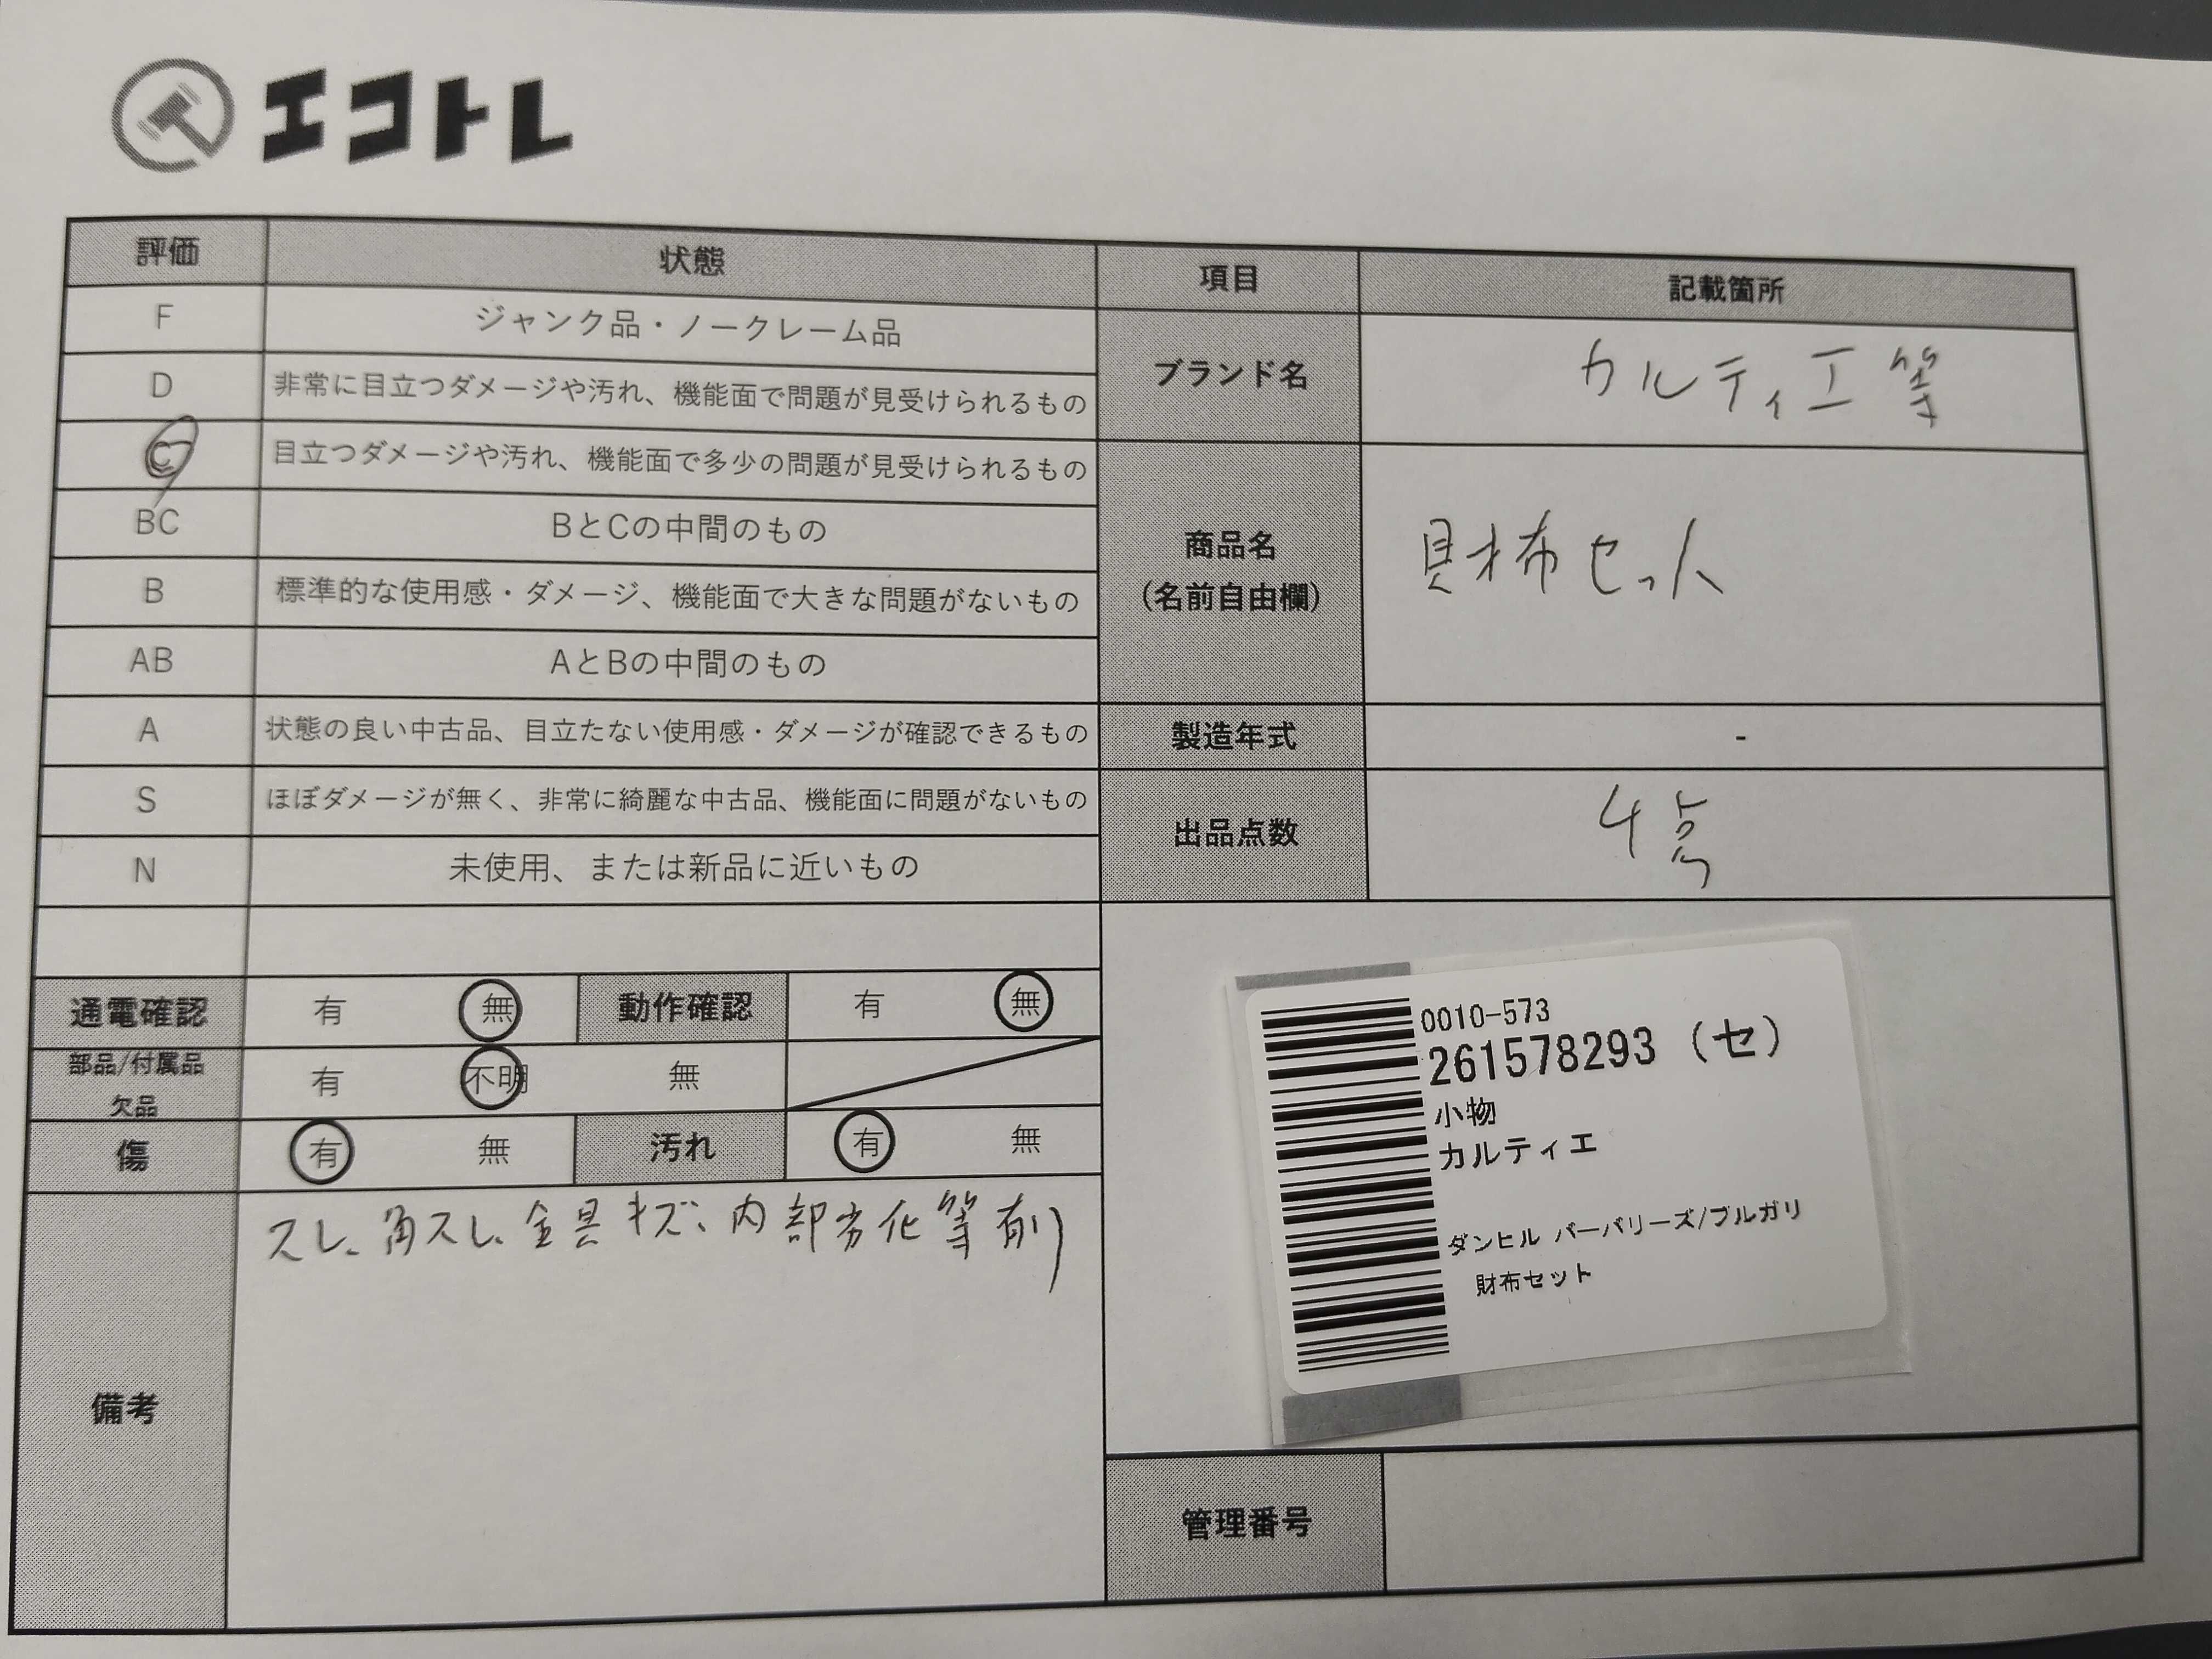 エコトレ
評価 状態
F ジャンク品・ノークレーム品
D 非常に目立つダメージや汚れ、機能面で問題が見受けられるもの
C 目立つダメージや汚れ、機能面で多少の問題が見受けられるもの
BC BとCの中間のもの
B 標準的な使用感・ダメージ、機能面で大きな問題がないもの
AB AとBの中間のもの
A 状態の良い中古品、目立たない使用感・ダメージが確認できるもの
S ほぼダメージが無く、非常に綺麗な中古品、機能面に問題がないもの
N 未使用、または新品に近いもの
通電確認 有 無 動作確認 有 無
部品/付属品
欠品 有 不明 無
傷 有 無 汚れ 有 無
備考 スレ、角スレ、金具キズ、内部劣化等有り
項目 記載箇所
ブランド名 カルティエ等
商品名
(名前自由欄) 財布セット
製造年式 -
出品点数 4点
0010-573
261578293 (セ)
小物
カルティエ
ダンヒル バーバリーズ/ブルガリ
財布セット
管理番号